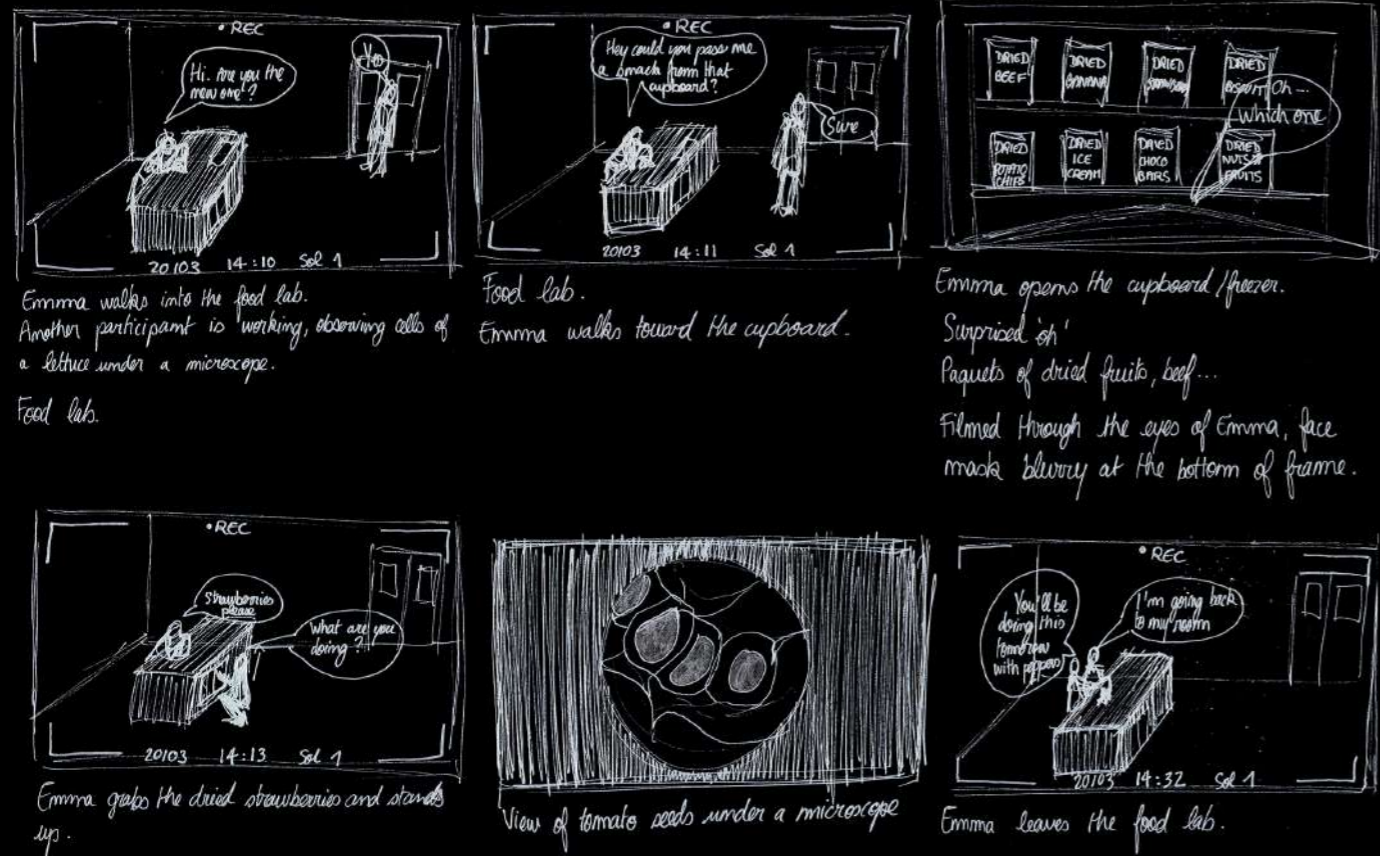 • REC
Hi. Are you the
new one?
Yes
20/03 14:10 Sol 1
Emma walks into the food lab.
Another participant is working, observing cells of
a lettuce under a microscope.
Food lab.
• REC
Hey could you pass me
a snack from that
cupboard?
Sure
20/03 14:11 Sol 1
Food lab.
Emma walks toward the cupboard.
DRIED
BEEF
DRIED
BANANA
DRIED
DRIED
BISCUIT
Oh...
which one
DRIED
POTATO
CHIPS
DRIED
ICE
CREAM
DRIED
CHOCO
BARS
DRIED
NUTS &
FRUITS
Emma opens the cupboard/freezer.
Surprised 'oh'
Paquets of dried fruits, beef...
Filmed through the eyes of Emma, face
mask blurry at the bottom of frame.
• REC
Strawberries
please
What are you
doing?
20/03 14:13 Sol 1
Emma grabs the dried strawberries and stands
up.
View of tomato seeds under a microscope
• REC
You'll be
doing this
tomorrow
with peppers
I'm going back
to my room
20/03 14:32 Sol 1
Emma leaves the food lab.